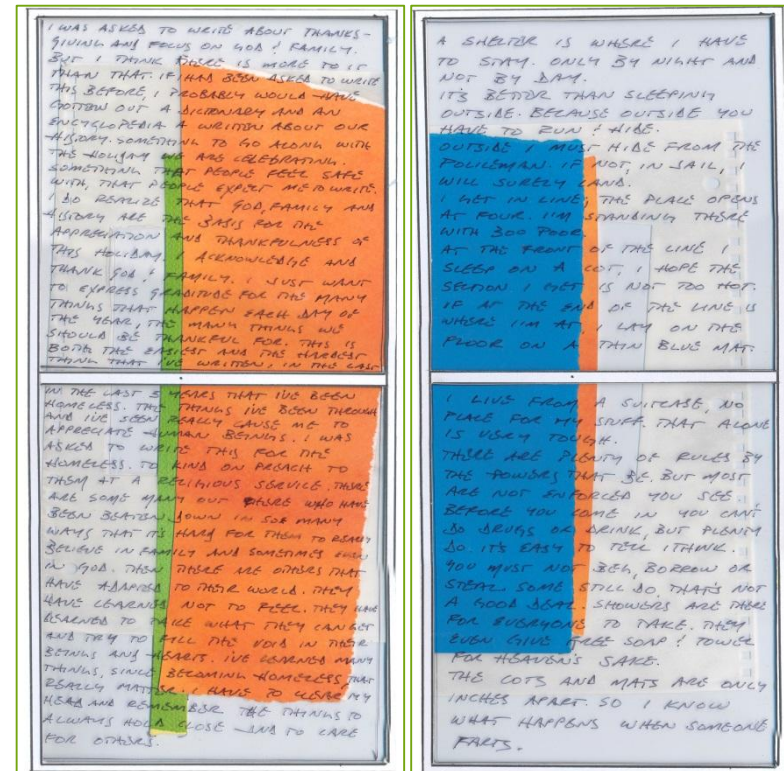 I WAS ASKED TO WRITE ABOUT THANKS-
GIVING AND FOCUS ON GOD & FAMILY.
BUT I THINK THERE IS MORE TO IT
THAN THAT. IF I HAD BEEN ASKED TO WRITE
THIS BEFORE, I PROBABLY WOULD HAVE
GOTTEN OUT A DICTIONARY AND AN
ENCYCLOPEDIA & WRITTEN ABOUT OUR
HISTORY. SOMETHING TO GO ALONG WITH
THE HOLIDAY WE ARE CELEBRATING.
SOMETHING THAT PEOPLE FEEL SAFE
WITH, THAT PEOPLE EXPECT ME TO WRITE.
I DO REALIZE THAT GOD, FAMILY AND
HISTORY ARE THE BASIS FOR THE
APPRECIATION AND THANKFULNESS OF
THIS HOLIDAY. I ACKNOWLEDGE AND
THANK GOD & FAMILY. I JUST WANT
TO EXPRESS GRADITUDE FOR THE MANY
THINGS THAT HAPPEN EACH DAY OF
THE YEAR, THE MANY THINGS WE
SHOULD BE THANKFUL FOR. THIS IS
BOTH THE EASIEST AND THE HARDEST
THING THAT I'VE WRITTEN, IN THE LAST
IN THE LAST 5 YEARS THAT I'VE BEEN
HOMELESS. THE THINGS I'VE BEEN THROUGH
AND I'VE SEEN REALLY CAUSE ME TO
APPRECIATE HUMAN BEINGS. I WAS
ASKED TO WRITE THIS FOR THE
HOMELESS. TO KIND ON PREACH TO
THEM AT A RELIGIOUS SERVICE. THERE
ARE SOME MANY OUT THERE WHO HAVE
BEEN BEATEN DOWN IN SOE MANY
WAYS THAT IT'S HARD FOR THEM TO REALLY
BELIEVE IN FAMILY AND SOMETIMES EVEN
IN GOD. THEN THERE ARE OTHERS THAT
HAVE ADAPTED TO THEIR WORLD. THEY
HAVE LEARNED NOT TO FEEL. THEY HAVE
LEARNED TO TAKE WHAT THEY CAN GET
AND TRY TO FILL THE VOID IN THEIR
BEINGS AND HEARTS. I'VE LEARNED MANY
THINGS, SINCE BECOMING HOMELESS, THAT
REALLY MATTER. I HAVE TO CLEAR MY
HEAD AND REMEMBER THE THINGS TO
ALWAYS HOLD CLOSE AND TO CARE
FOR OTHERS.
A SHELTER IS WHERE I HAVE
TO STAY. ONLY BY NIGHT AND
NOT BY DAY.
IT'S BETTER THAN SLEEPING
OUTSIDE. BECAUSE OUTSIDE YOU
HAVE TO RUN & HIDE.
OUTSIDE I MUST HIDE FROM THE
POLICEMAN. IF NOT, IN JAIL, I
WILL SURELY LAND.
I GET IN LINE, THE PLACE OPENS
AT FOUR. I'M STANDING THERE
WITH 300 POOR.
AT THE FRONT OF THE LINE I
SLEEP ON A COT, I HOPE THE
SECTION I GET IS NOT TOO HOT.
IF AT THE END OF THE LINE IS
WHERE I'M AT, I LAY ON THE
FLOOR ON A THIN BLUE MAT.
I LIVE FROM A SUITCASE, NO
PLACE FOR MY STUFF. THAT ALONE
IS VERY TOUGH.
THERE ARE PLENTY OF RULES BY
THE POWERS THAT BE. BUT MOST
ARE NOT ENFORCED YOU SEE.
BEFORE YOU COME IN YOU CAN'T
DO DRUGS OR DRINK, BUT PLENTY
DO. IT'S EASY TO TELL I THINK.
YOU MUST NOT BEG, BORROW OR
STEAL. SOME STILL DO. THAT'S NOT
A GOOD DEAL. SHOWERS ARE THERE
FOR EVERYONE TO TAKE. THEY
EVEN GIVE FREE SOAP & TOWEL
FOR HEAVEN'S SAKE.
THE COTS AND MATS ARE ONLY
INCHES APART. SO I KNOW
WHAT HAPPENS WHEN SOMEONE
FARTS.